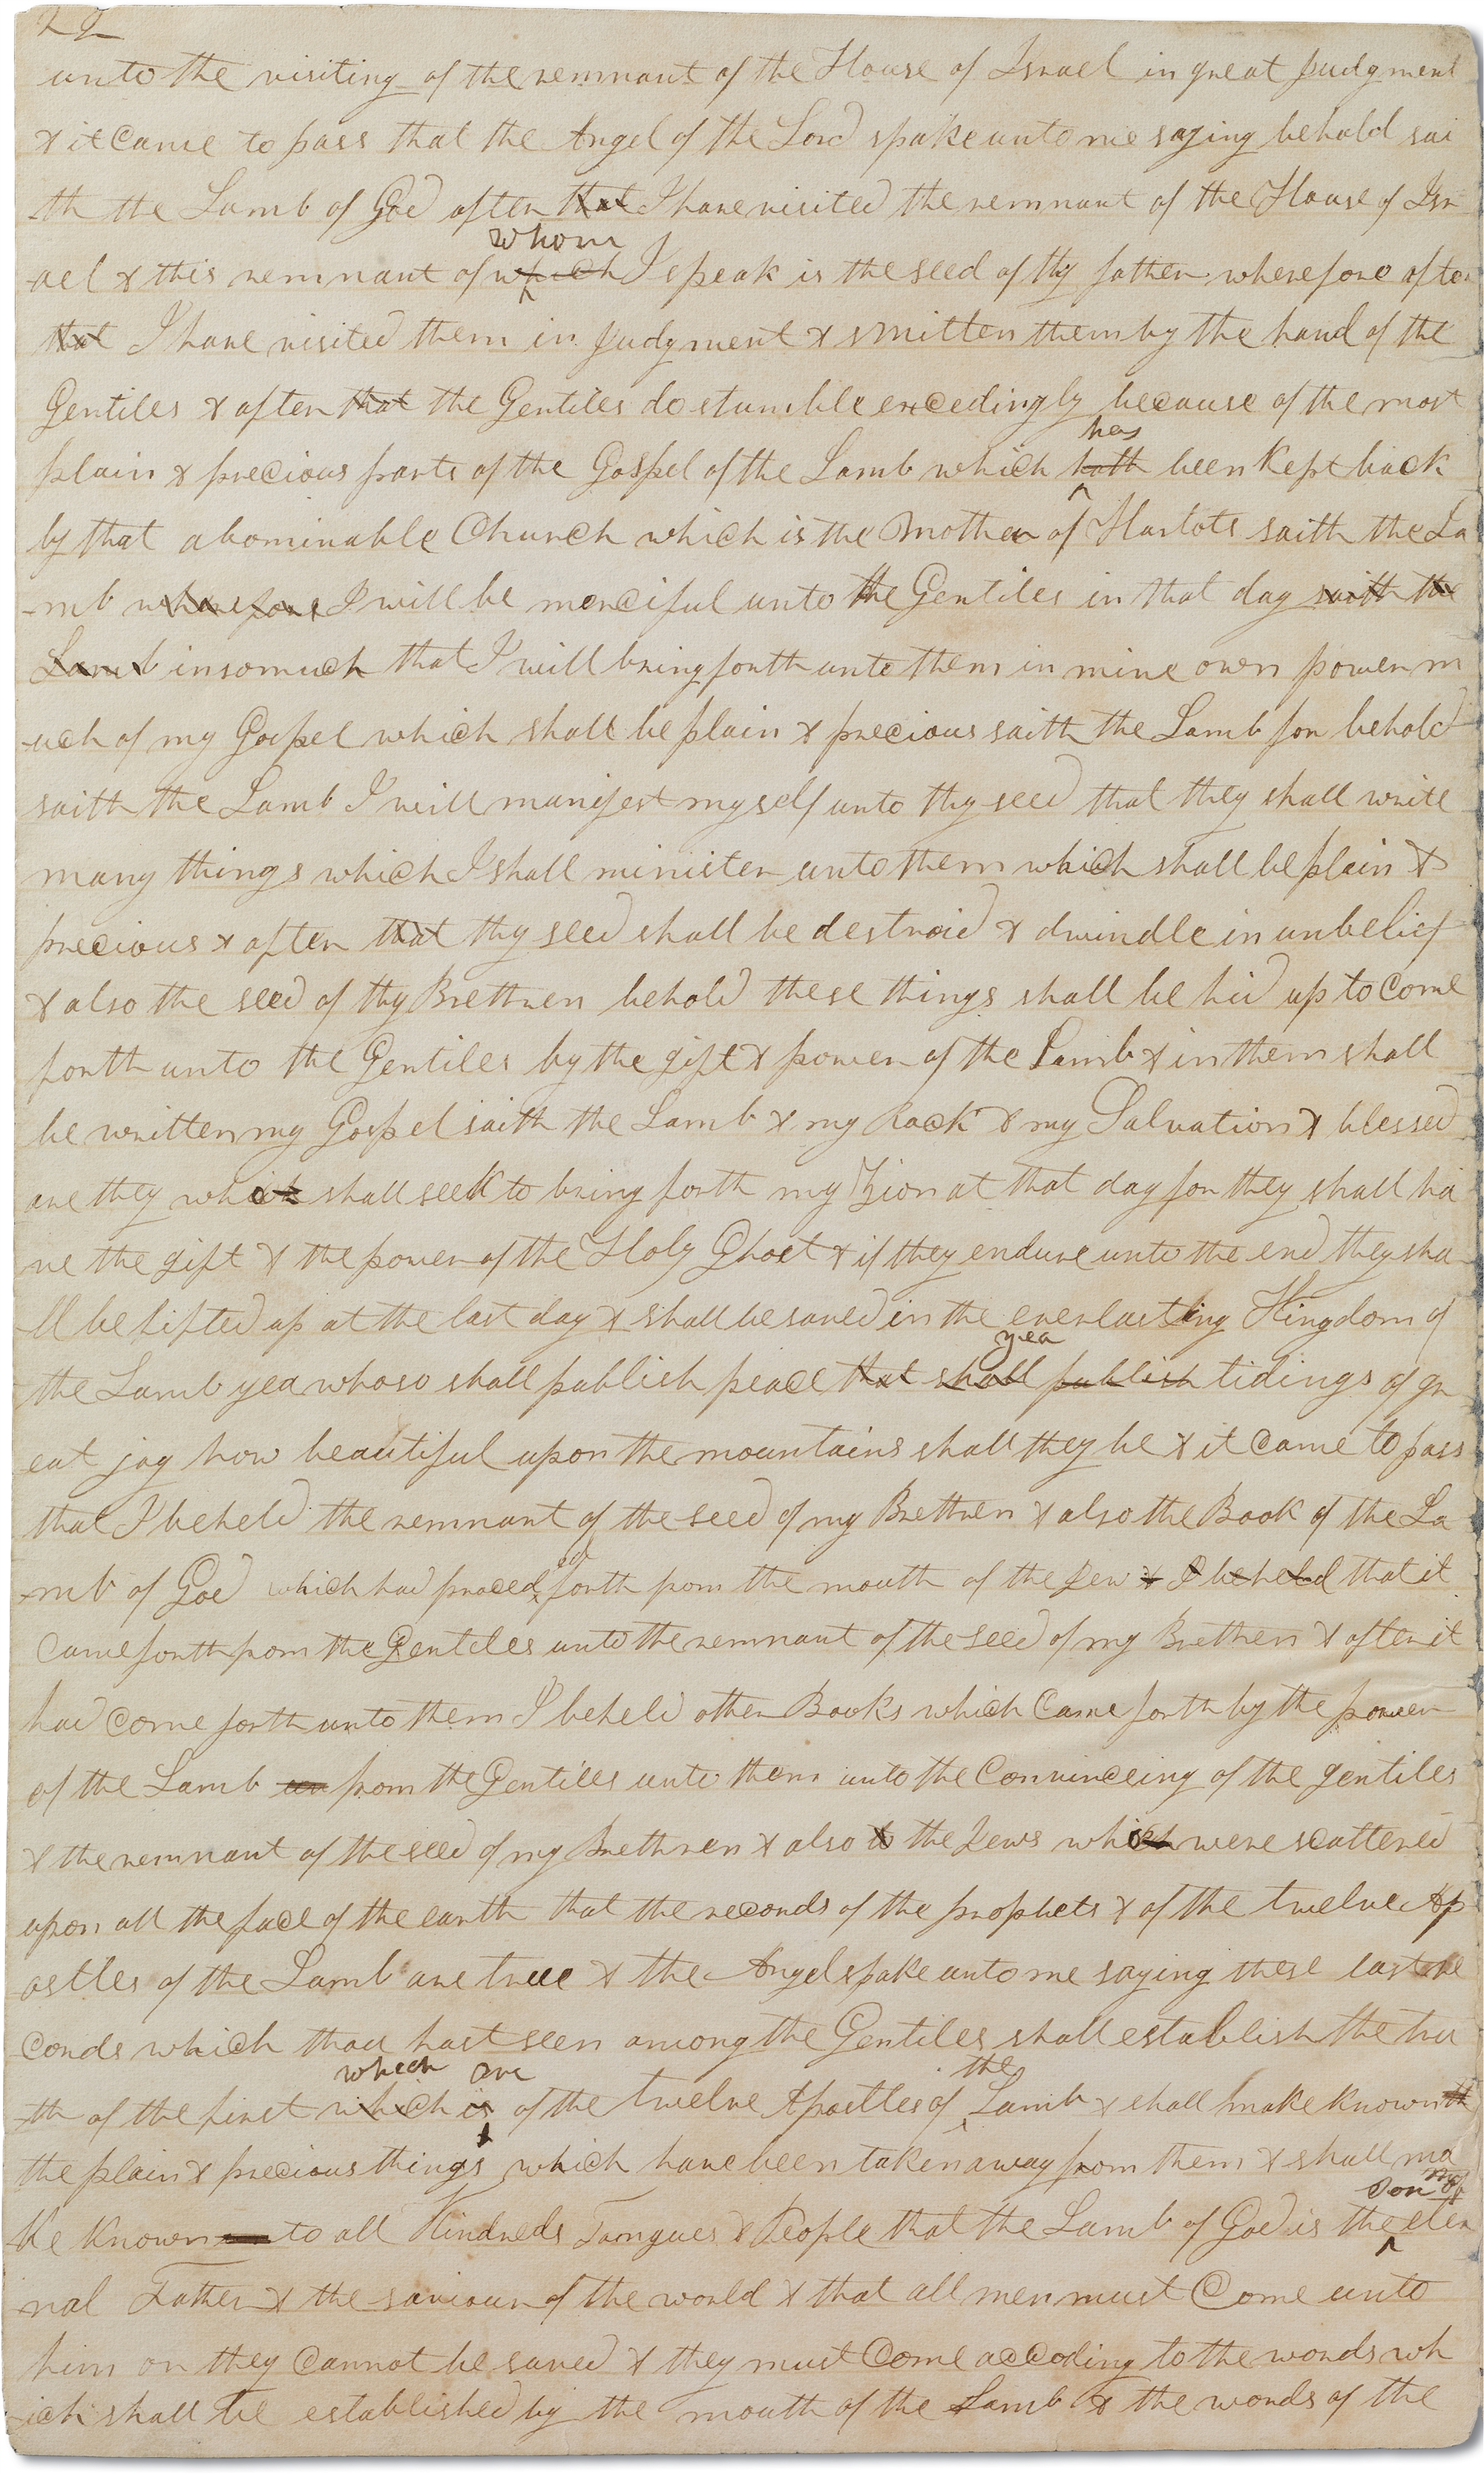 22
unto the visiting of the remnant of the House of Israel in great judgment
& it came to pass that the Angel of the Lord spake unto me saying behold sai
th the Lamb of God after that I have visited the remnant of the House of Isr
whom
ael & this remnant of which I speak is the seed of thy father wherefore after
that I have visited them in judgment & smitten them by the hand of the
Gentiles & after that the Gentiles do stumble excedingly because of the most
has
plain & precious parts of the Gospel of the Lamb which hath been kept back
by that abominable Church which is the Mother of Harlots saith the La
-mb wherefore I will be merciful unto the Gentiles in that day saith the
Lamb insomuch that I will bring forth unto them in mine own power m
-uch of my Gospel which shall be plain & precious saith the Lamb for behold
saith the Lamb I will manifest myself unto thy seed that they shall write
many things which I shall minister unto them which shall be plain &
precious & after that thy seed shall be destroid & dwindle in unbelief
& also the seed of thy Brethren behold these things shall be hid up to come
forth unto the Gentiles by the gift & power of the Lamb & in them shall
be written my Gospel saith the Lamb & my Rock & my Salvation & blessed
are they which shall seek to bring forth my Zion at that day for they shall ha
ve the gift & the power of the Holy Ghost & if they endure unto the end they sha
-ll be lifted up at the last day & shall be saved in the everlasting Kingdom of
yea
the Lamb yea whoso shall publish peace that shall publish tidings of gr
eat joy how beautiful upon the mountains shall they be & it came to pass
that I beheld the remnant of the seed of my Brethren & also the Book of the La
ed
-mb of God which had proced forth from the mouth of the Jew & I beheld that it
came forth from the Gentiles unto the remnant of the seed of my Brethren & after it
had come forth unto them I beheld other Books which came forth by the power
of the Lamb un from the Gentiles unto them unto the Convinceing of the gentiles
& the remnant of the seed of my Brethren & also to the Jews which were scattered
upon all the face of the earth that the records of the prophets & of the twelve Ap
ostles of the Lamb are true & the Angel spake unto me saying these last re
cords which thou hast seen among the Gentiles shall establish the tru
which are the
-th of the first which is of the twelve Apostles of Lamb & shall make known
the plain & precious things which have been taken away from them & shall ma
Son of
ke known to all Kindreds Toungues & People that the Lamb of God is the eter
nal Father & the saviour of the world & that all men must Come unto
him or they cannot be saved & they must Come accoding to the words wh
ich shall be established by the mouth of the Lamb & the words of the